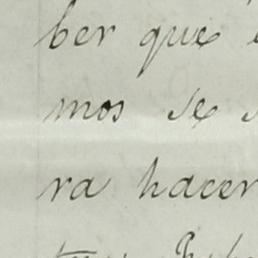 ber que
mos se
ra hacer